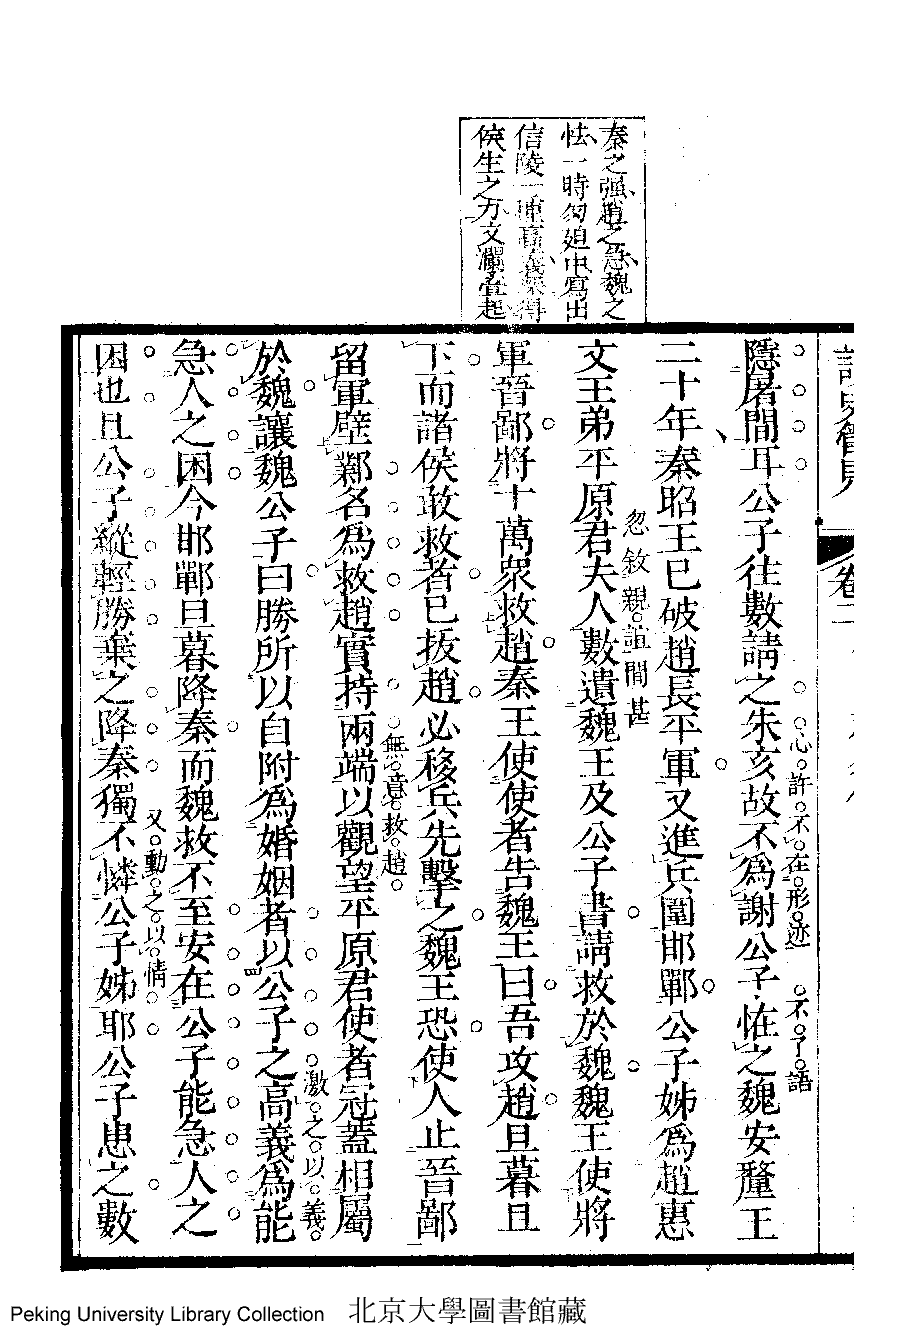 秦之强趙之急魏之
怯一時匆迫中寫出
信陵一
侯生之力文瀾壘起
卷二
隱屠間耳公子往數請之朱亥故不爲謝公子恠之魏安釐王
心許不在形迹
不了語
二十年秦昭王已破趙長平軍又進兵圍邯鄲公子姊爲趙惠
忽敘親誼間甚
文王弟平原君夫人數遺魏王及公子書請救於魏魏王使將
軍晉鄙將十萬衆救趙秦王使使者告魏王曰吾攻趙旦暮且
下而諸侯敢救者已拔趙必移兵先擊之魏王恐使人止晉鄙
無意救趙
留軍壁鄴名爲救趙實持兩端以觀望平原君使者冠蓋相屬
激之以義
於魏讓魏公子曰勝所以自附爲婚姻者以公子之高義爲能
急人之困今邯鄲旦暮降秦而魏救不至安在公子能急人之
又動之以情
困也且公子縱輕勝棄之降秦獨不憐公子姊耶公子患之數
Peking University Library Collection 北京大學圖書館藏